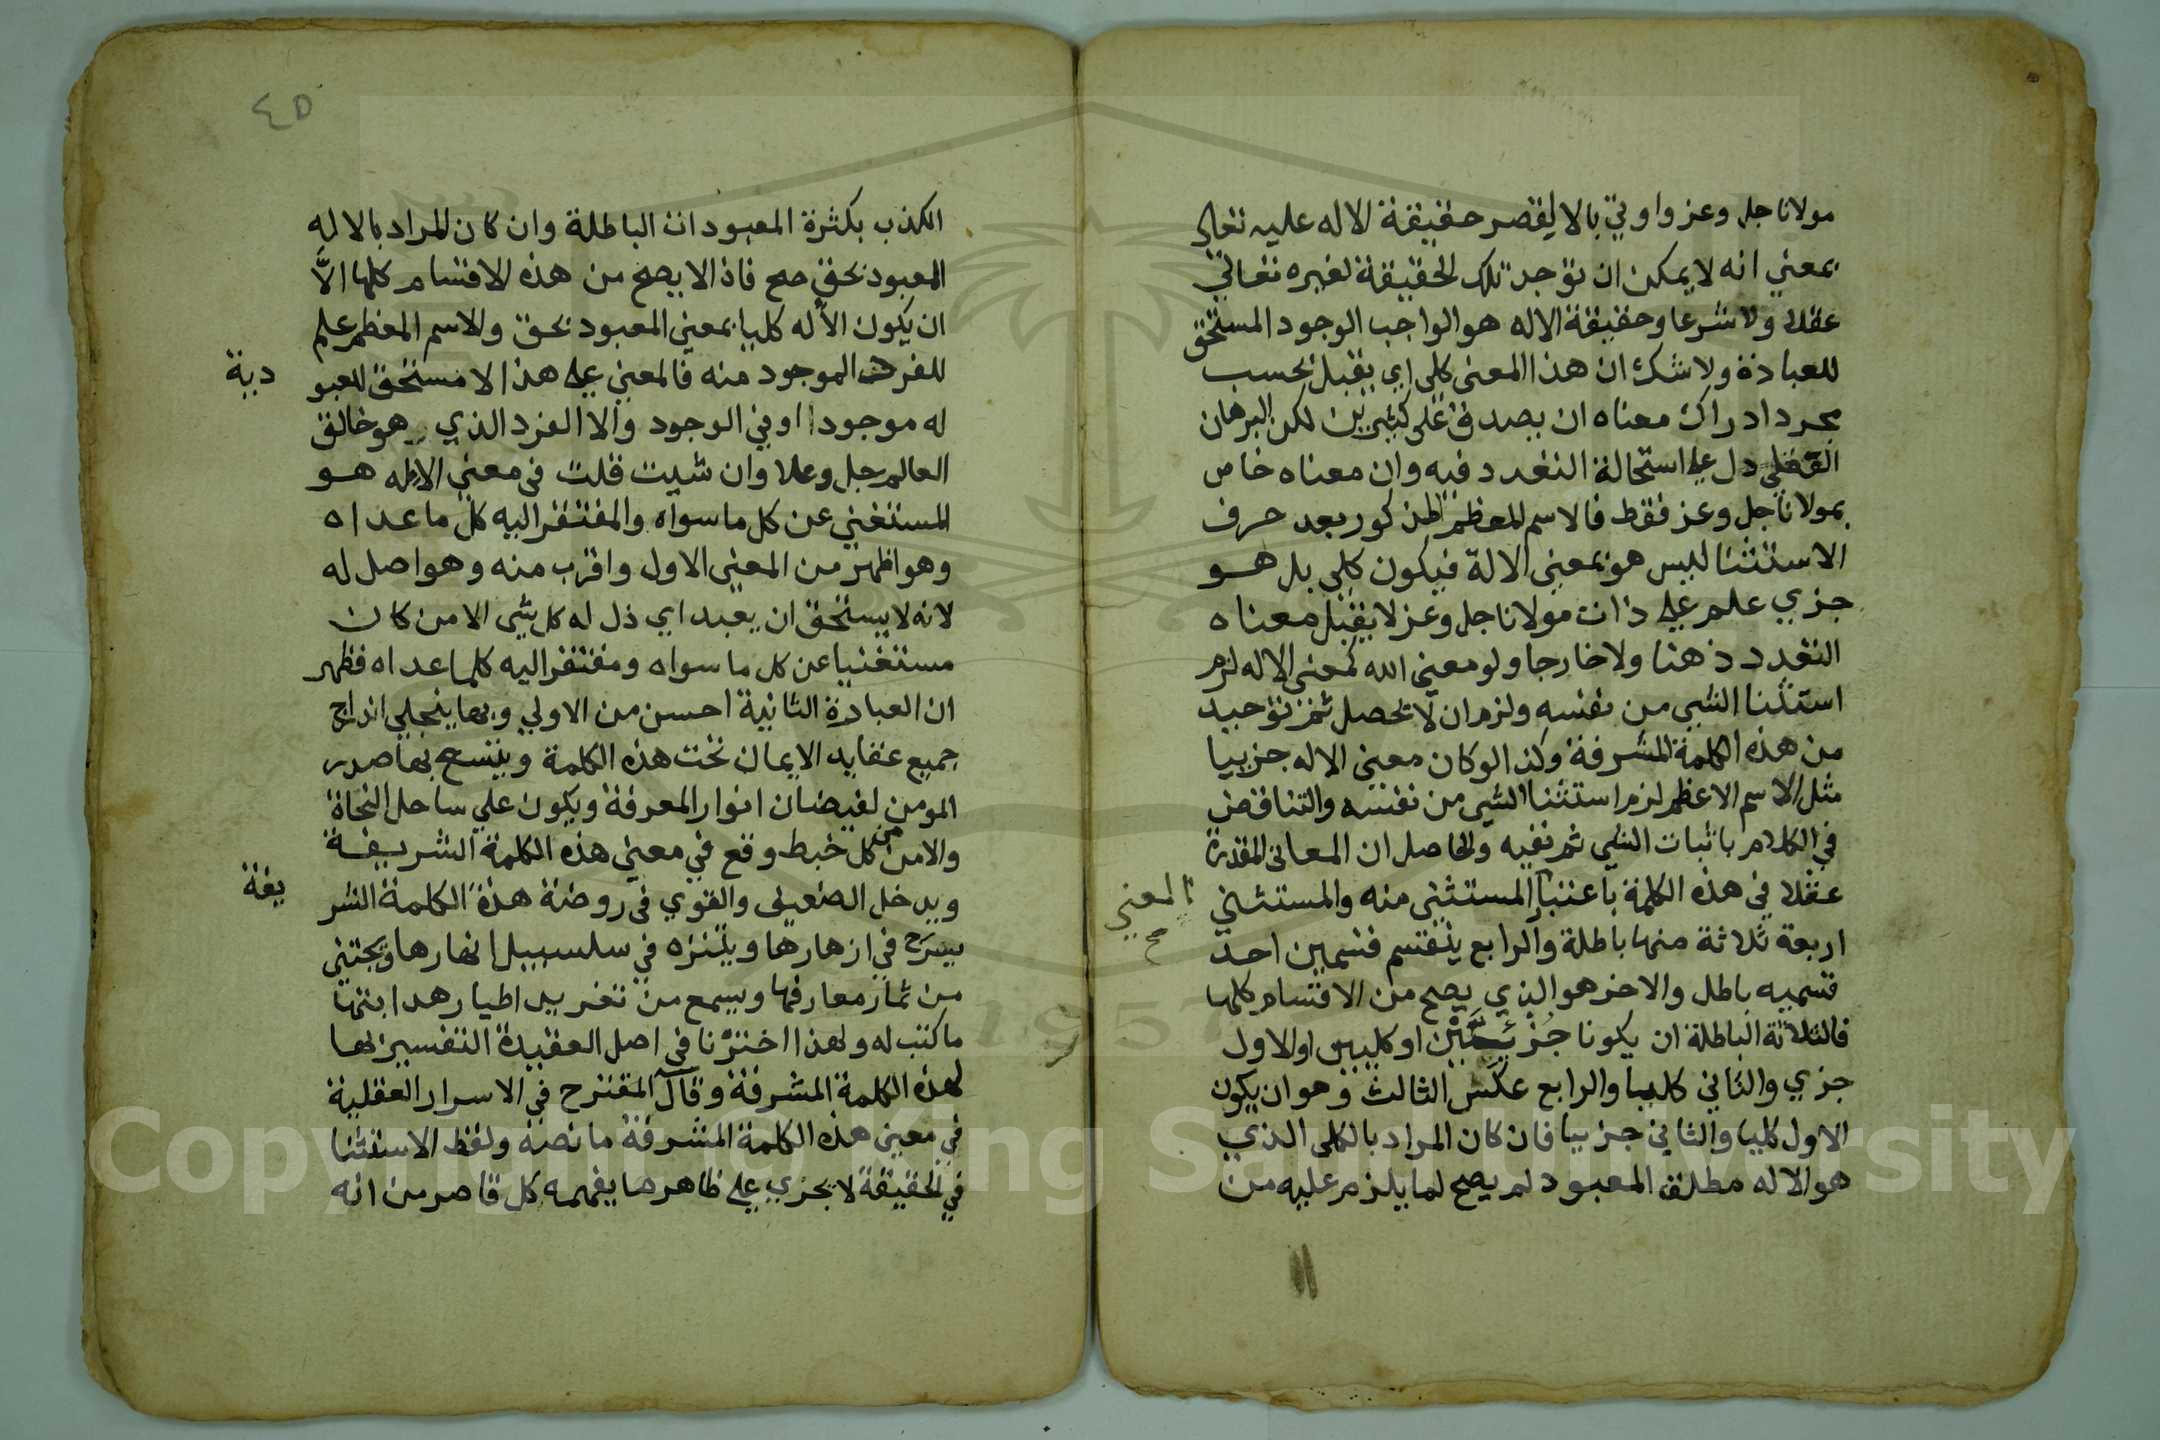 مولانا جل وعز واوتي بالا ليقصر حقيقة الاله عليه تعالى
بمعني انه لا يمكن ان توجد تلك الحقيقة لغيره تعالي
عقلا ولا شرعا وحقيقة الاله هو الواجب الوجود المستحق
للعبادة ولا شك ان هذا المعنى كلي اي يقبل بحسب
مجرد ادراك معناه ان يصدق على كثيرين لكن البرهان
القطعي دل علي استحالة التعدد فيه وان معناه خاص
بمولانا جل وعز فقط فالاسم المعظم المذكور بعد حرف
الاستثنا ليس هو بمعني الالة فيكون كلي بل هو
جزي علم علي ذات مولانا جل وعز لا يقبل معناه
التعدد ذهنا ولا خارجا ولو معني الله كمعني الاله لزم
استثنا الشي من نفسه ولزم ان لا يحصل ثم توحيد
من هذه الكلمة المشرفة وكذا لو كان معني الاله جزييا
مثل الاسم الاعظم لزم استثنا الشي من نفسه والتناقض
في الكلام باثبات الشي ثم نفيه والحاصل ان المعاني المقدرة
عقلا في هذه الكلمة باعتبار المستثني منه والمستثني
المعني صح
اربعة ثلاثة منها باطلة والرابع ينقسم قسمين احد
قسميه باطل والاخر هو الذي يصح من الاقسام كلها
فالثلاثة الباطلة ان يكونا جزئيين او كليين او الاول
جزي والثاني كليا والرابع عكس الثالث وهو ان يكون
الاول كليا والثاني جزييا فان كان المراد بالكلي الذي
هو الاله مطلق المعبود لم يصح لما يلزم عليه من
٤٥
الكذب بكثرة المعبودات الباطلة وان كان المراد بالاله
المعبود بحق صح فاذا لا يصح من هذه الاقسام كلها الا
ان يكون الاله كليا بمعني المعبود بحق والاسم المعظم علم
للفرد الموجود منه فالمعني علي هذا لا مستحق للعبو
دية
له موجودا او في الوجود والا الفرد الذي هو خالق
العالم جل وعلا وان شيت قلت في معني الاله هو
المستغني عن كل ما سواه والمفتقر اليه كل ما عداه
وهو اظهر من المعني الاول واقرب منه وهو اصل له
لانه لا يستحق ان يعبد اي ذل له كل شي الا من كان
مستغنيا عن كل ما سواه ومفتقر اليه كلما عداه فظهر
ان العبارة الثانية احسن من الاولي وبها ينجلي اندراج
جميع عقايد الايمان تحت هذه الكلمة ويتسع بها صدر
المومن لفيضان انوار المعرفة ويكون علي ساحل النجاة
والامن من كل خبط وقع في معني هذه الكلمة الشريفة
ويدخل الضعيف والقوي في روضة هذه الكلمة الشر
يفة
يسرح في ازهارها ويتنزه في سلسبيل انهارها ويجتني
من ثمار معارفها ويسمع من تغريد اطيار هدايتها
ما كتب له ولهذا اخترنا في اصل العقيدة التفسير بها
لهذه الكلمة المشرفة وقال المقترح في الاسرار العقلية
في معني هذه الكلمة المشرفة ما نصه ولفظ الاستثنا
في الحقيقة لا يجزي علي ظاهر ما يفهمه كل قاصر من انه
Copyright © King Saud University
1957